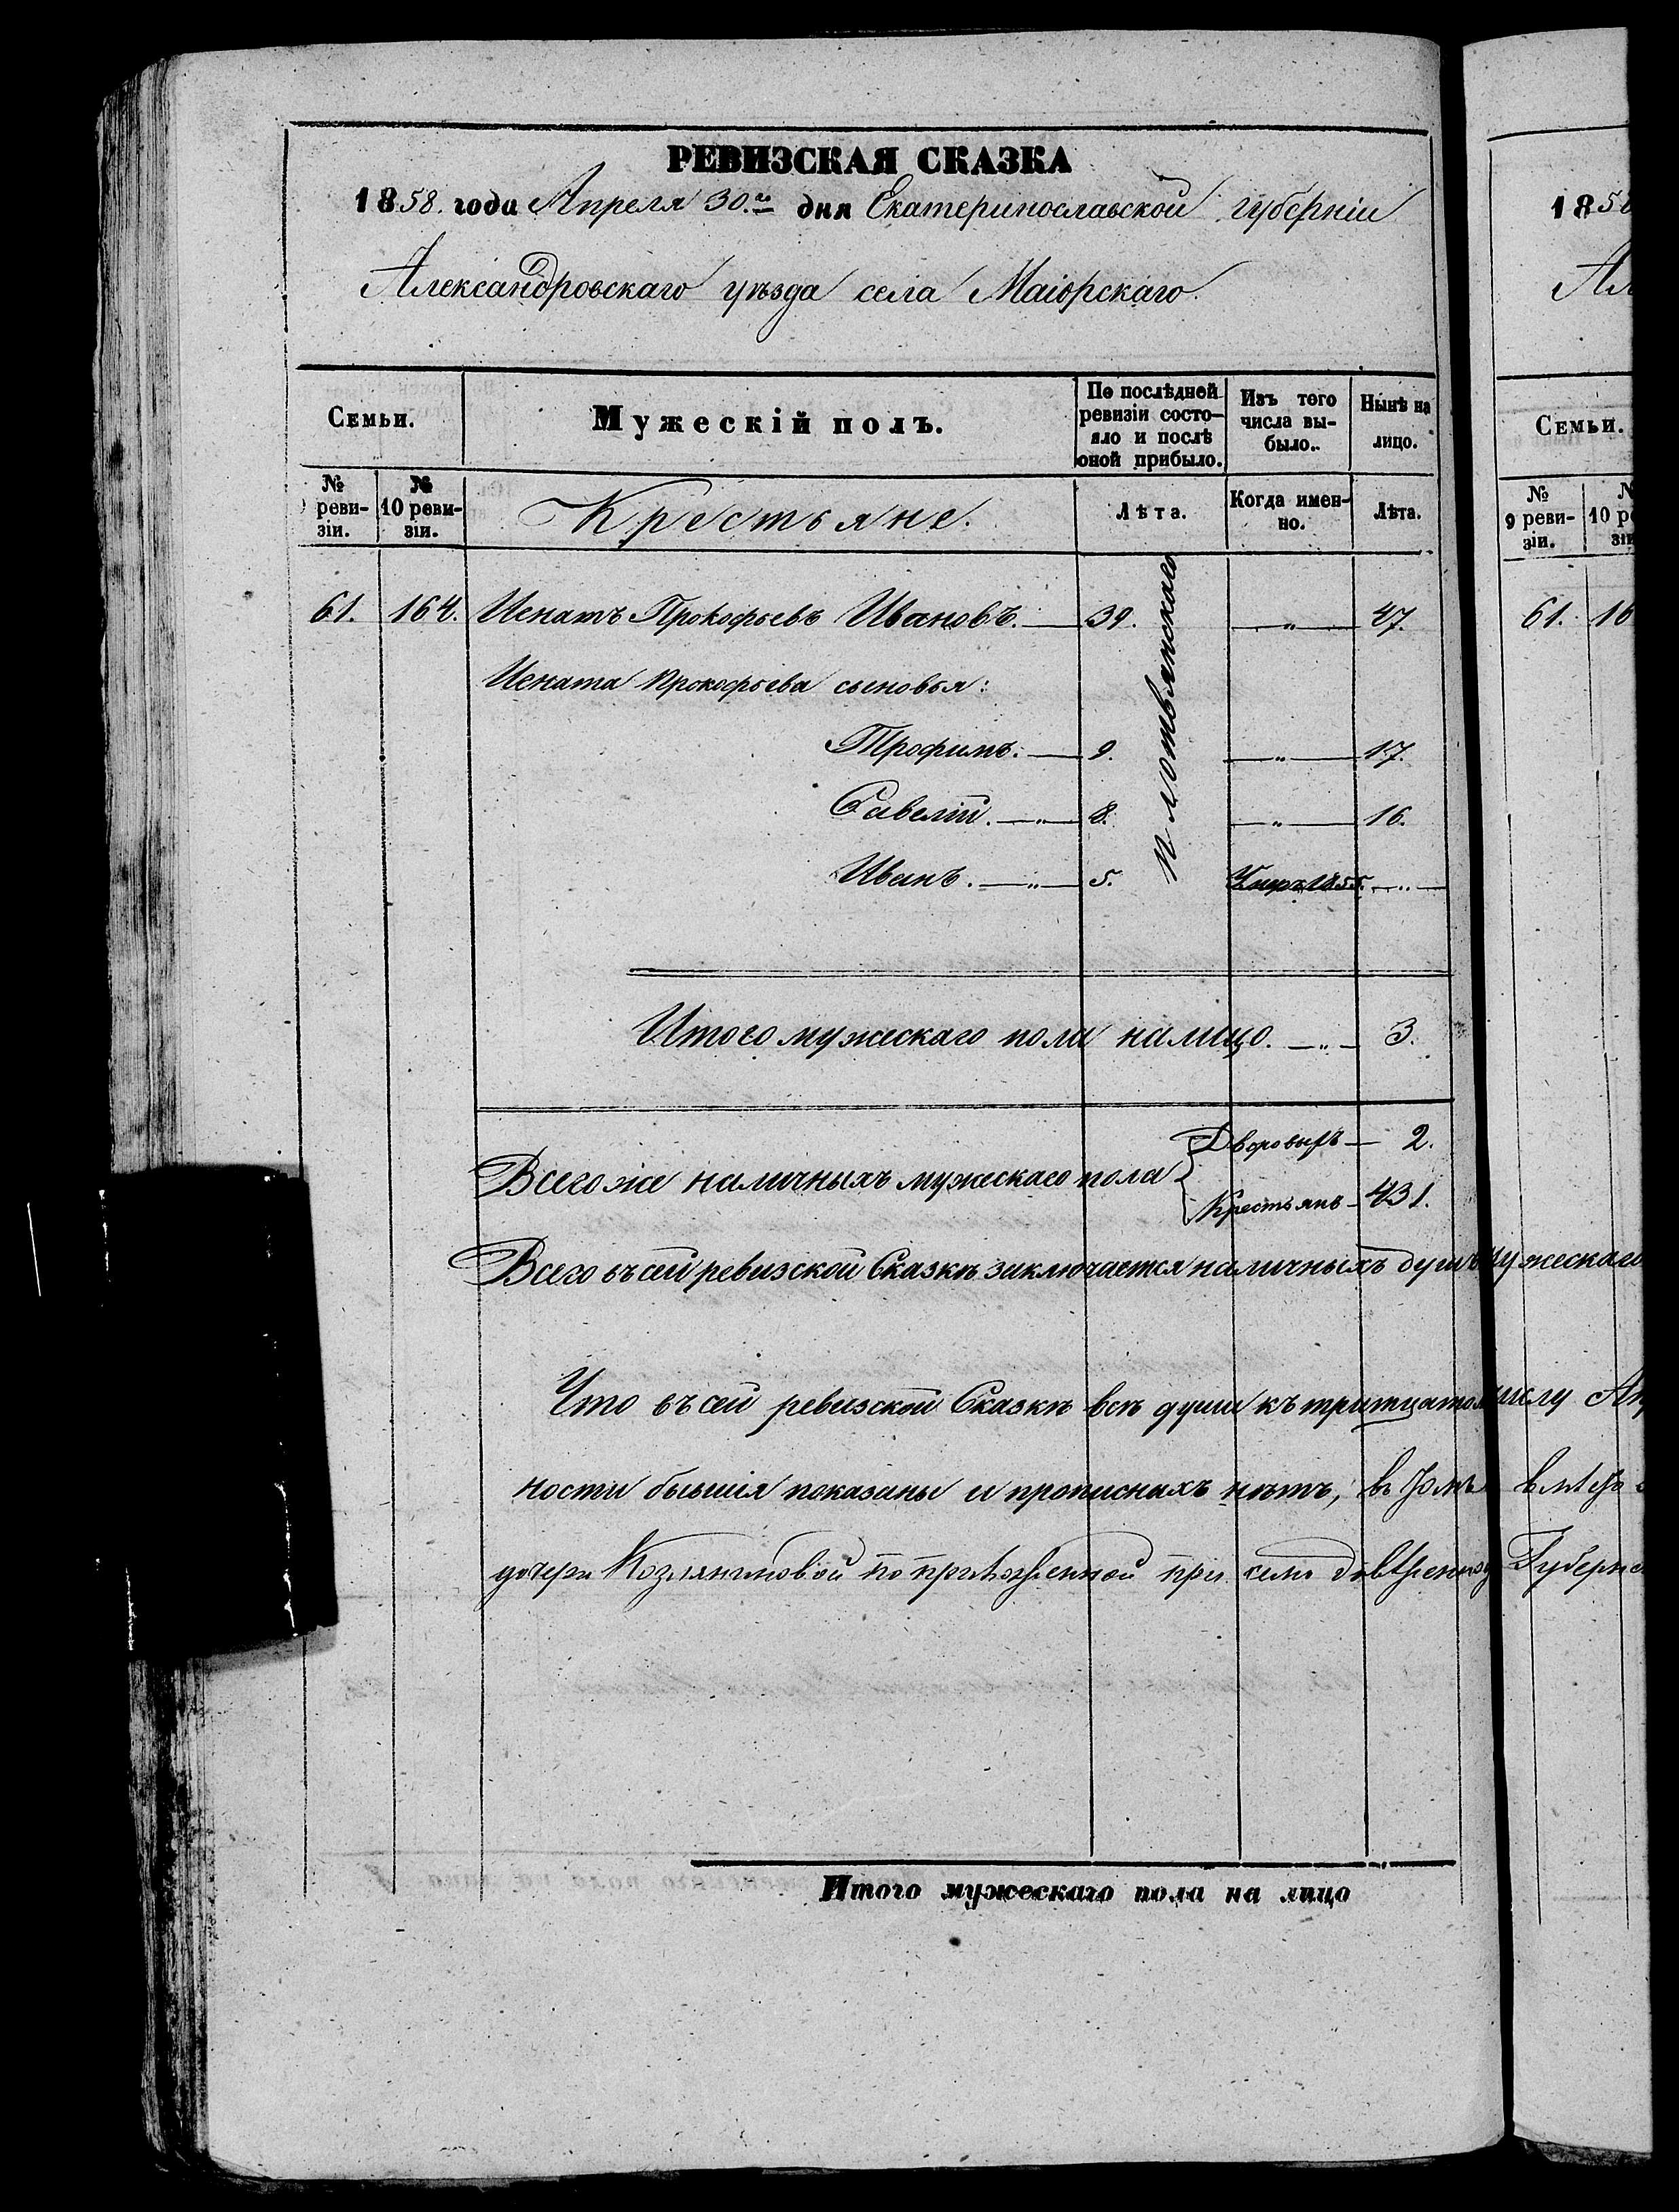 РЕВИЗСКАЯ СКАЗКА
1858. года Апреля 30.го дня Екатеринославской губерніи
Александровскаго уѣзда села Маіорскаго.
Семьи.
Мужескій полъ.
По послѣдней ревизіи состо-
яло и послѣ
оной прибыло.
Изъ того
числа вы-
было.
Нынѣ на
лицо.
№
реви-
зіи.
№
10 реви-
зіи.
Крестьяне.
Лѣта.
Когда имен-
но.
Лѣта.
61. 164. Игнатъ Прокофьевъ Ивановъ. 39. " 47.
Игната Прокофьева сыновья:
Трофимъ. 9. " 17.
Савелій. " 8. " 16.
Иванъ. " 5. Умръ 1855. "
Итого мужескаго пола налицо. " 3.
Всего же наличныхъ мужескаго пола
Дворовыхъ 2.
Крестьянъ 431.
Всего въ сей ревизской Сказкѣ заключается наличныхъ душъ мужескаго
Что въ сей ревизской Сказкѣ всѣ души къ тритцатому числу Ап
ности бывшія показаны и прописныхъ нѣтъ, въ томъ вмѣсто
дочери по приложенной при семъ довѣренно Губерн
Итого мужескаго пола на лицо
185
Ал
Семьи.
№
9 реви-
зіи.
№
10 ре
зіи
61. 16